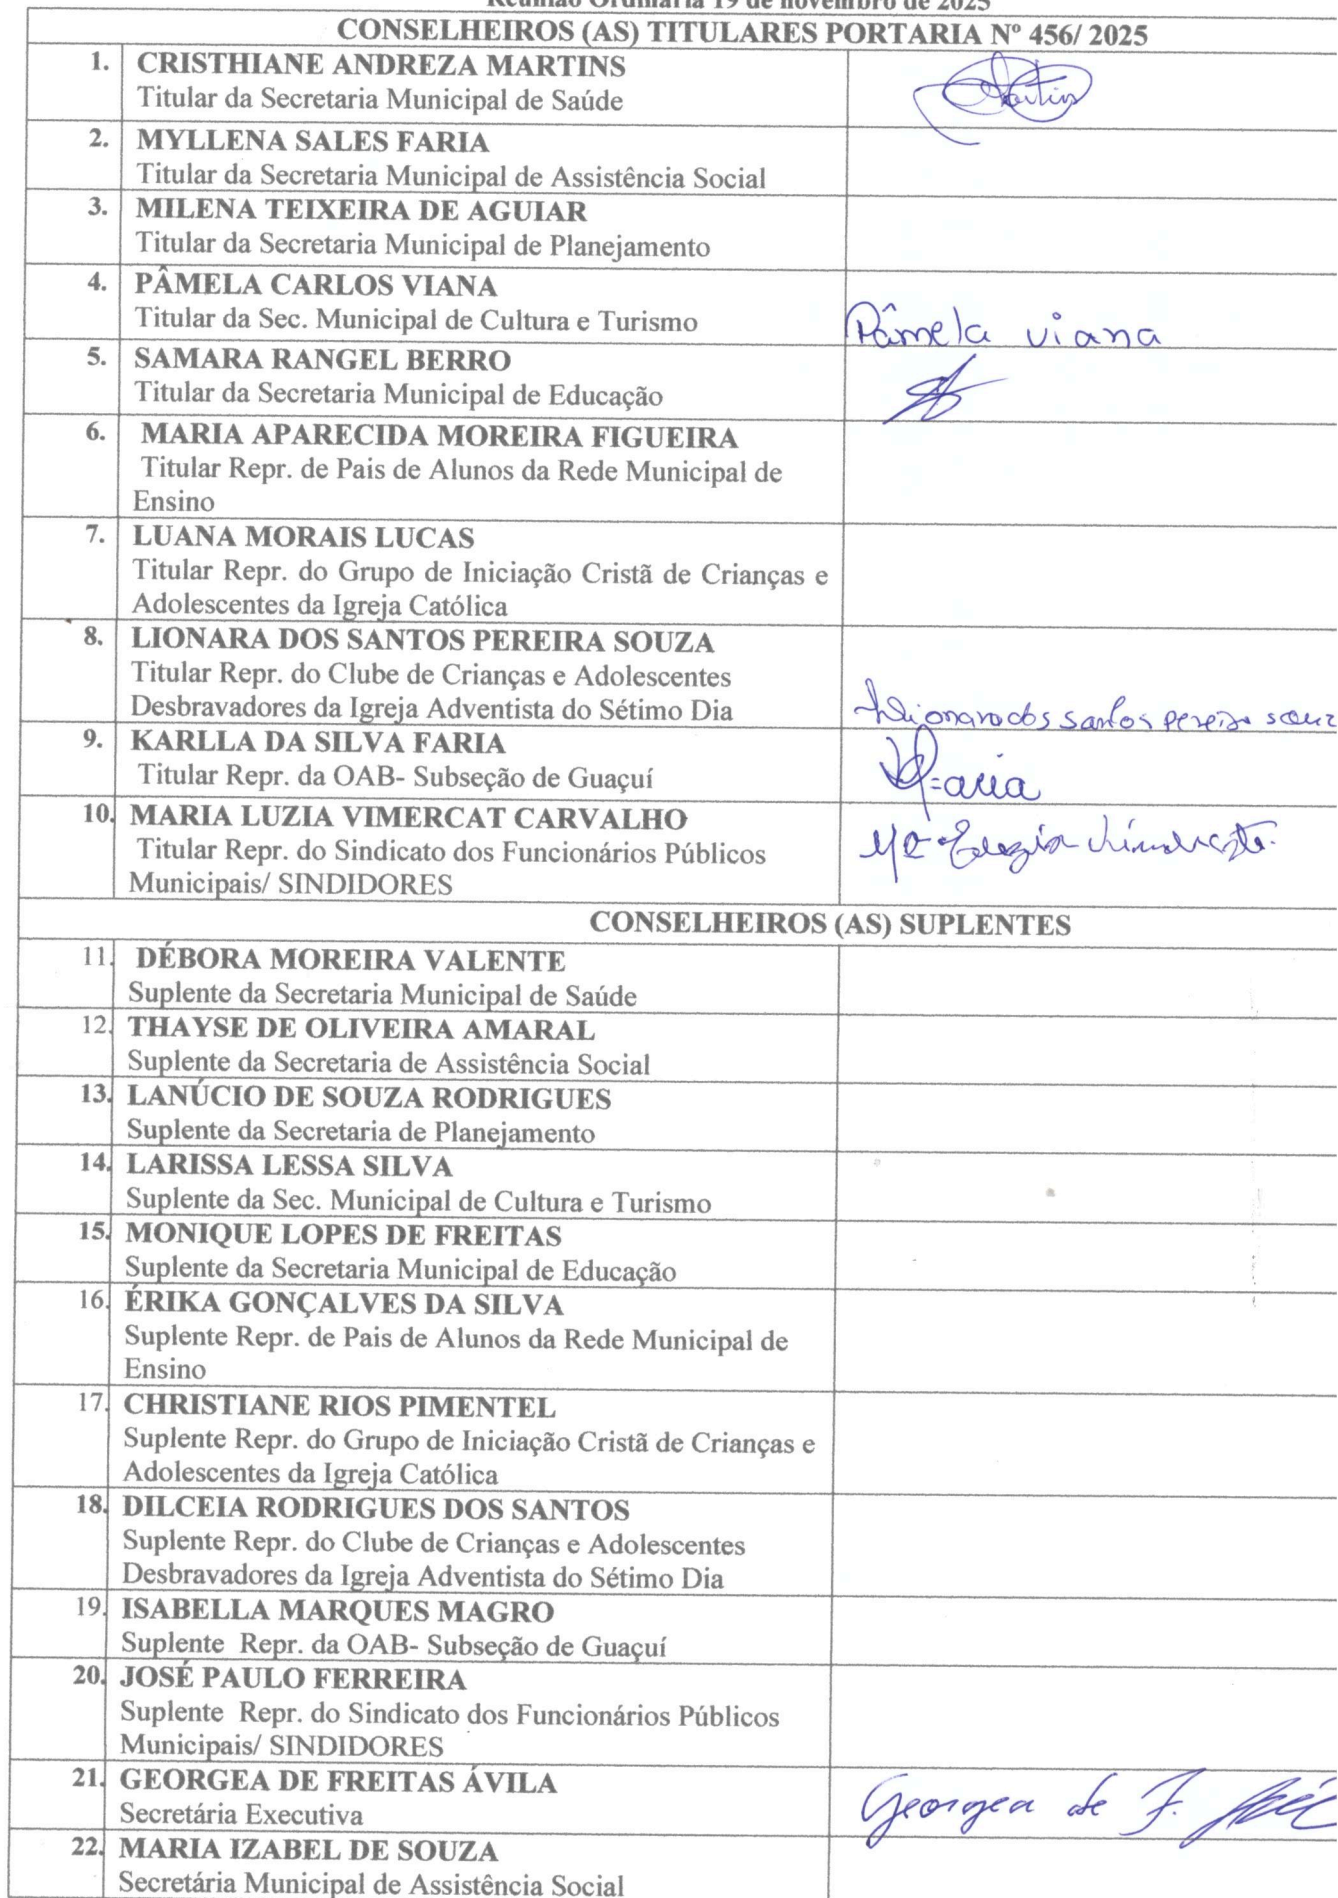 Reunião Ordinária 19 de novembro de 2025
CONSELHEIROS (AS) TITULARES PORTARIA Nº 456/ 2025
1. CRISTHIANE ANDREZA MARTINS
Titular da Secretaria Municipal de Saúde
Martins
2. MYLLENA SALES FARIA
Titular da Secretaria Municipal de Assistência Social
3. MILENA TEIXEIRA DE AGUIAR
Titular da Secretaria Municipal de Planejamento
4. PÂMELA CARLOS VIANA
Titular da Sec. Municipal de Cultura e Turismo
Pâmela viana
5. SAMARA RANGEL BERRO
Titular da Secretaria Municipal de Educação
6. MARIA APARECIDA MOREIRA FIGUEIRA
Titular Repr. de Pais de Alunos da Rede Municipal de
Ensino
7. LUANA MORAIS LUCAS
Titular Repr. do Grupo de Iniciação Cristã de Crianças e
Adolescentes da Igreja Católica
8. LIONARA DOS SANTOS PEREIRA SOUZA
Titular Repr. do Clube de Crianças e Adolescentes
Desbravadores da Igreja Adventista do Sétimo Dia
Lionara dos santos pereira souz
9. KARLLA DA SILVA FARIA
Titular Repr. da OAB- Subseção de Guaçuí
Faria
10. MARIA LUZIA VIMERCAT CARVALHO
Titular Repr. do Sindicato dos Funcionários Públicos
Municipais/ SINDIDORES
Mª
CONSELHEIROS (AS) SUPLENTES
11. DÉBORA MOREIRA VALENTE
Suplente da Secretaria Municipal de Saúde
12. THAYSE DE OLIVEIRA AMARAL
Suplente da Secretaria de Assistência Social
13. LANÚCIO DE SOUZA RODRIGUES
Suplente da Secretaria de Planejamento
14. LARISSA LESSA SILVA
Suplente da Sec. Municipal de Cultura e Turismo
15. MONIQUE LOPES DE FREITAS
Suplente da Secretaria Municipal de Educação
16. ÉRIKA GONÇALVES DA SILVA
Suplente Repr. de Pais de Alunos da Rede Municipal de
Ensino
17. CHRISTIANE RIOS PIMENTEL
Suplente Repr. do Grupo de Iniciação Cristã de Crianças e
Adolescentes da Igreja Católica
18. DILCEIA RODRIGUES DOS SANTOS
Suplente Repr. do Clube de Crianças e Adolescentes
Desbravadores da Igreja Adventista do Sétimo Dia
19. ISABELLA MARQUES MAGRO
Suplente Repr. da OAB- Subseção de Guaçuí
20. JOSÉ PAULO FERREIRA
Suplente Repr. do Sindicato dos Funcionários Públicos
Municipais/ SINDIDORES
21. GEORGEA DE FREITAS ÁVILA
Secretária Executiva
Georgea de F.
22. MARIA IZABEL DE SOUZA
Secretária Municipal de Assistência Social